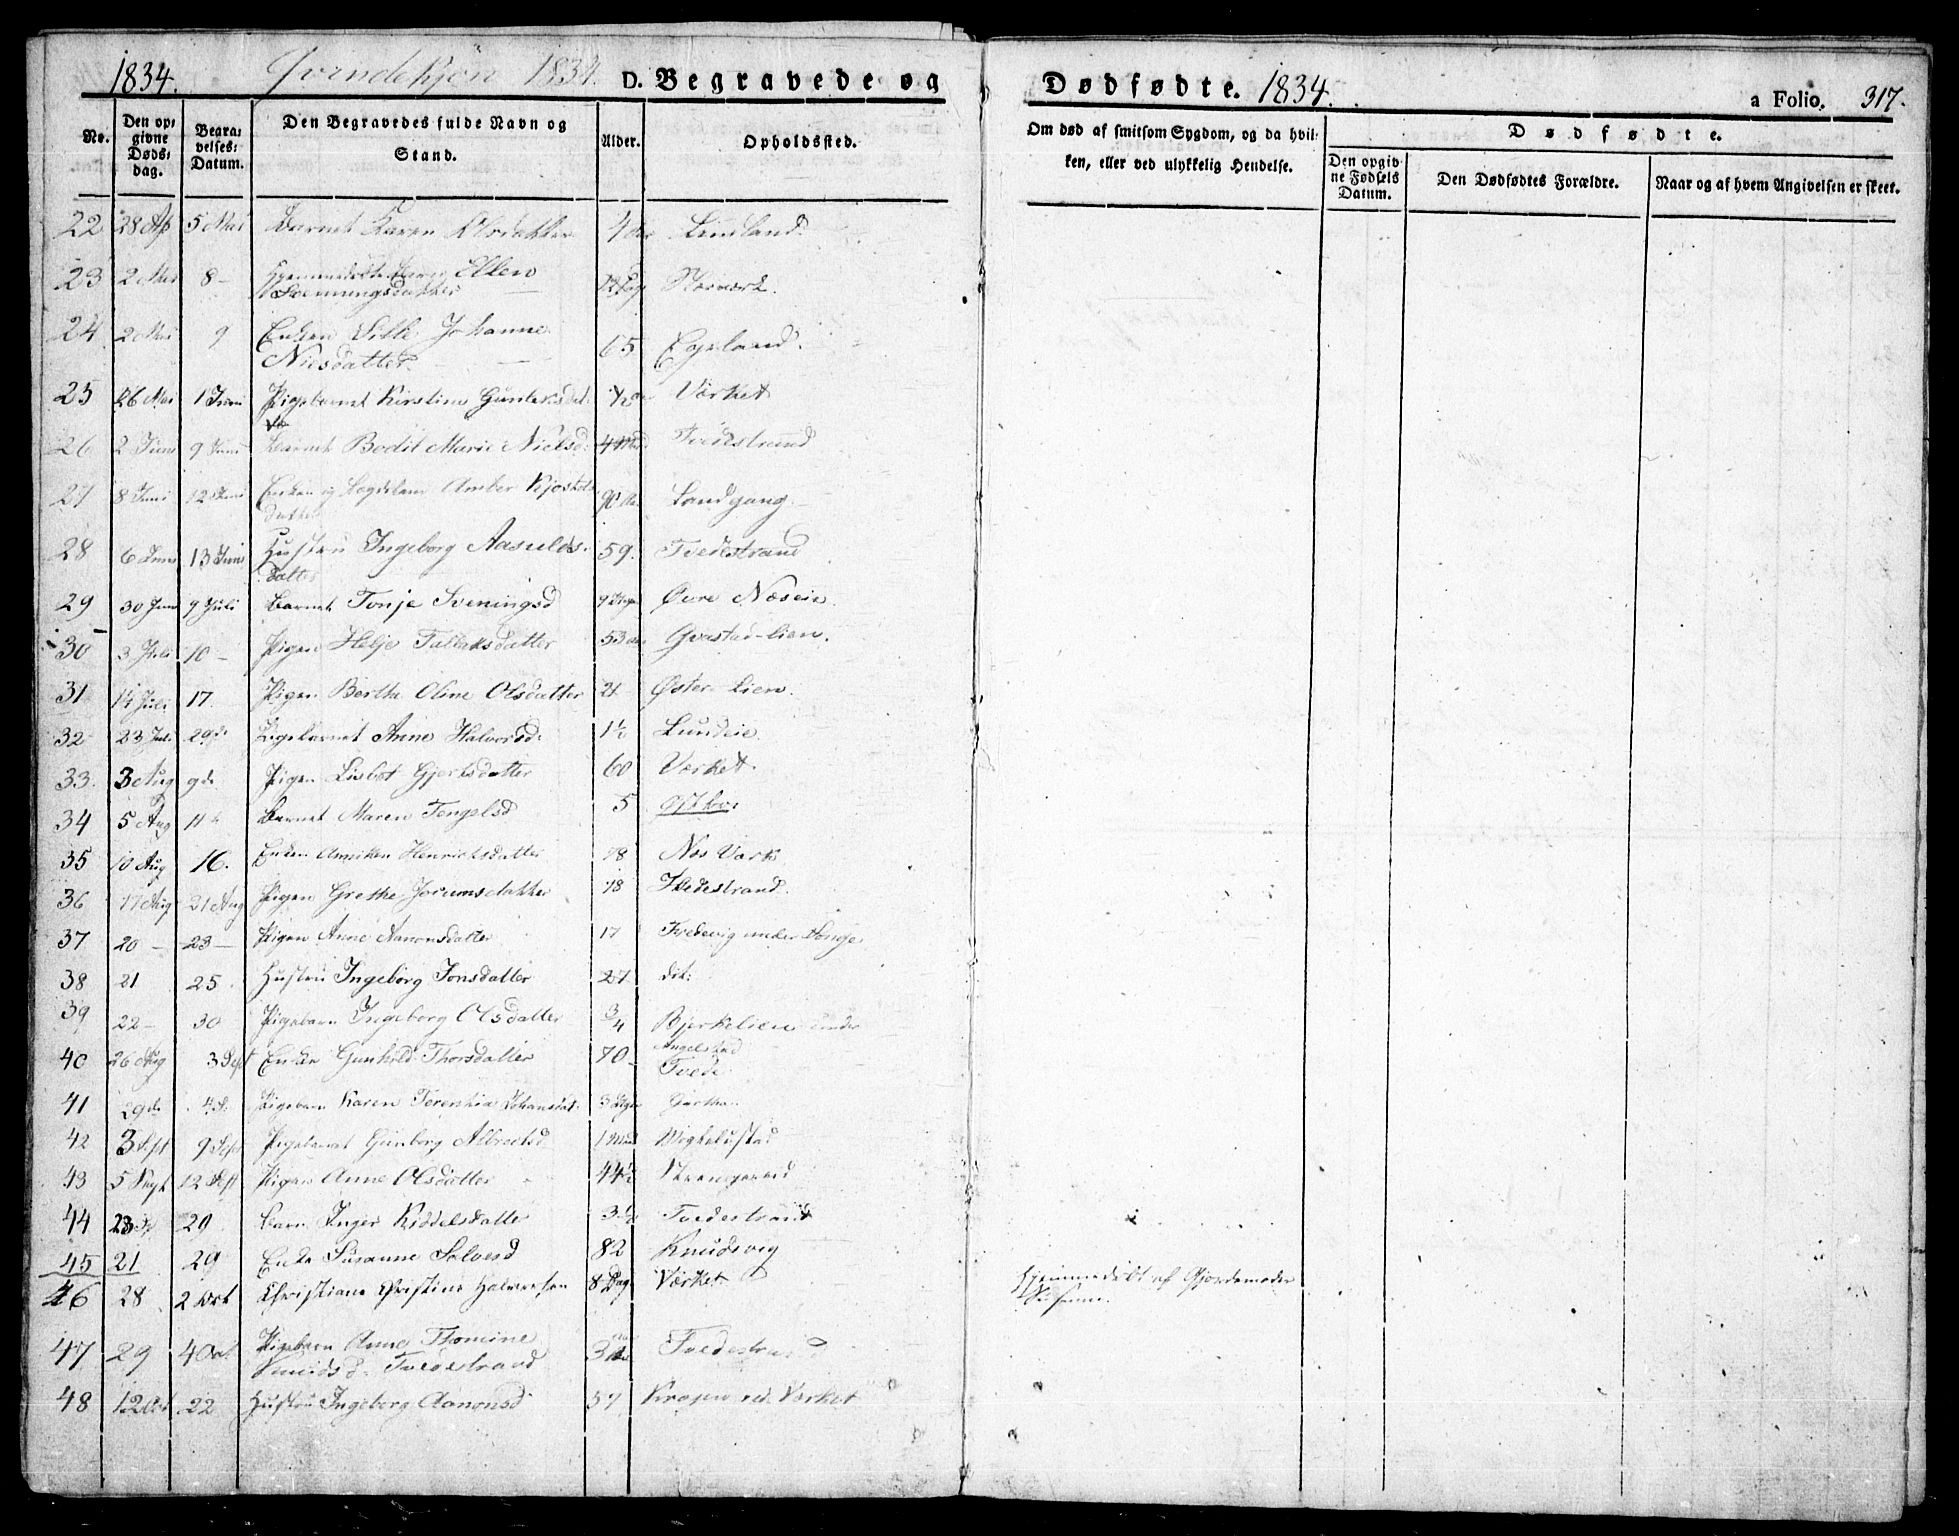 1834. Qvindekjøn 1834. D. Begravede og
Dødfødte. 1834. a Folio. 317.
No. Den opgivne Dødsdag. Begravelses-Datum. Den Begravedes fulde Navn og Stand. Alder. Opholdssted.
Om død af smitsom Sygdom, og da hvilken, eller ved ulykkelig Hendelse.
Dødfødte.
Den opgivne Fødsels Datum. Den Dødfødtes Forældre. Naar og af hvem Angivelsen er skeet.
22 28 Ap 5 Mai Barnet Karen Olsdatter 4
23 2 Mai 8 – Hjemmedøbte Barn Ellen
Svenningsdatter
24 2 Mai 9 Enken Sille Johanne
Nilsdatter 65 Egeland.
25 26 Mai 1 Juni Pigebarnet Kirstine Gunleksdat: Værket
26 2 Juni 9 Juni Barnet Bodil Marie Nielsd: 4 Tvedestrand
27 8 Juni 12 Juni Enken og Lægdslem Amber Kjostels
datter 90 Landgang
28 6 Juni 13 Juni Hustru Ingeborg Aasulds-
datter 59. Tvedestrand
29 30 Juni 9 Juli Barnet Tonje Sveningsd 9 Øvre Næsein
30 3 Juli 10 – Pigen Helje Tallaksdatter 53 Goestad-lien.
31 14 Juli 17. Pigen Berthe Oline Olsdatter 21 Øster Lien.
32 23 Juli 29de Pigebarnet Anne Halvorsd: 1½ Lundeie
33. 3 Aug 9de Pigen Lisbet Gjertsdatter 60 Værket.
34 5 Aug 11 Barnet Maren Tengelsd 5
35 10 Aug 16. Enken Anniken Henrichsdatter 78 Nes Værk
36 17 Aug 21 Aug Pigen Grethe Jorumsdatter 18 Tvedestrand.
37 20 – 23 – Pigen Anne Aanonsdatter 17 Tvedevig under Songe
38 21 25. Hustru Ingeborg Jonsdatter 27 dit:
39 22 – 30 Pigebarn Ingeborg Olsdatter 3/4 Bjerkelien under
Angelstad
40 26 Aug 3 Sept Enken Gunhild Thorsdatter 70 – Tvede
41 29de 4 Pigebarn Karen Terentia Johansdat: 3
42 3 Sept 9 Sept Pigebarnet Gunborg Albretsd 1
43 5 Sept 12 Sept Pigen Anne Olsdatter 44½
44 23 29 Barn Inger Kiddelsdatter 3½ Tvedestrand
45 21 29 Enke Susanne Salvesd 82 Knudsvig
46 28 2 Oct Christiane Christine Halvorsen 8 Dag Værket Hjemmedøbt af Gjordemoder
47 29 4 Oct Pigebarn Anne Thomine
Knudsd. Tvedestrand 3 Tvedestrand
48 12 Oct 22 Hustru Ingeborg Aanonsd 57 Krogen ved Værket